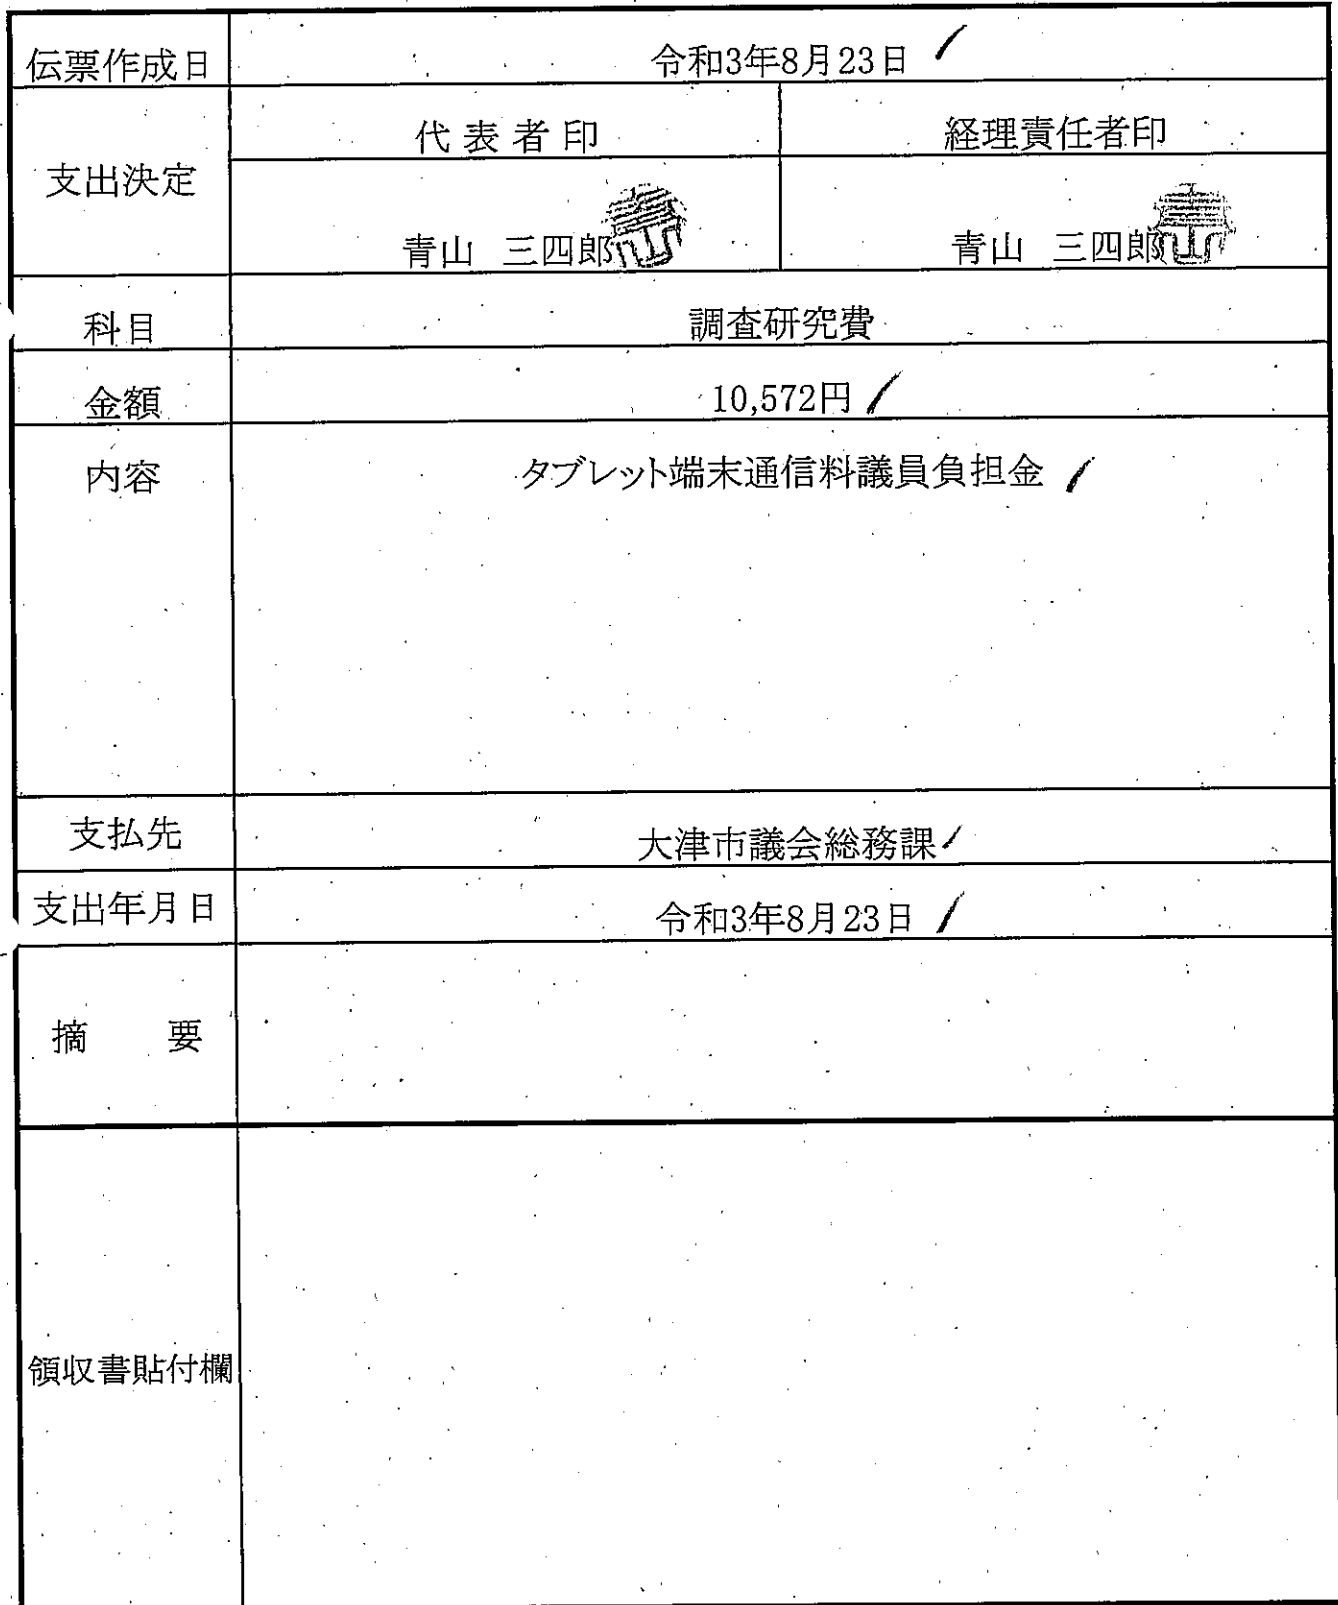 伝票作成日 令和3年8月23日
支出決定 代表者印 経理責任者印
青山 三四郎 青山 青山 三四郎 青山
科目 調査研究費
金額 10,572円
内容 タブレット端末通信料議員負担金
支払先 大津市議会総務課
支出年月日 令和3年8月23日
摘 要
領収書貼付欄